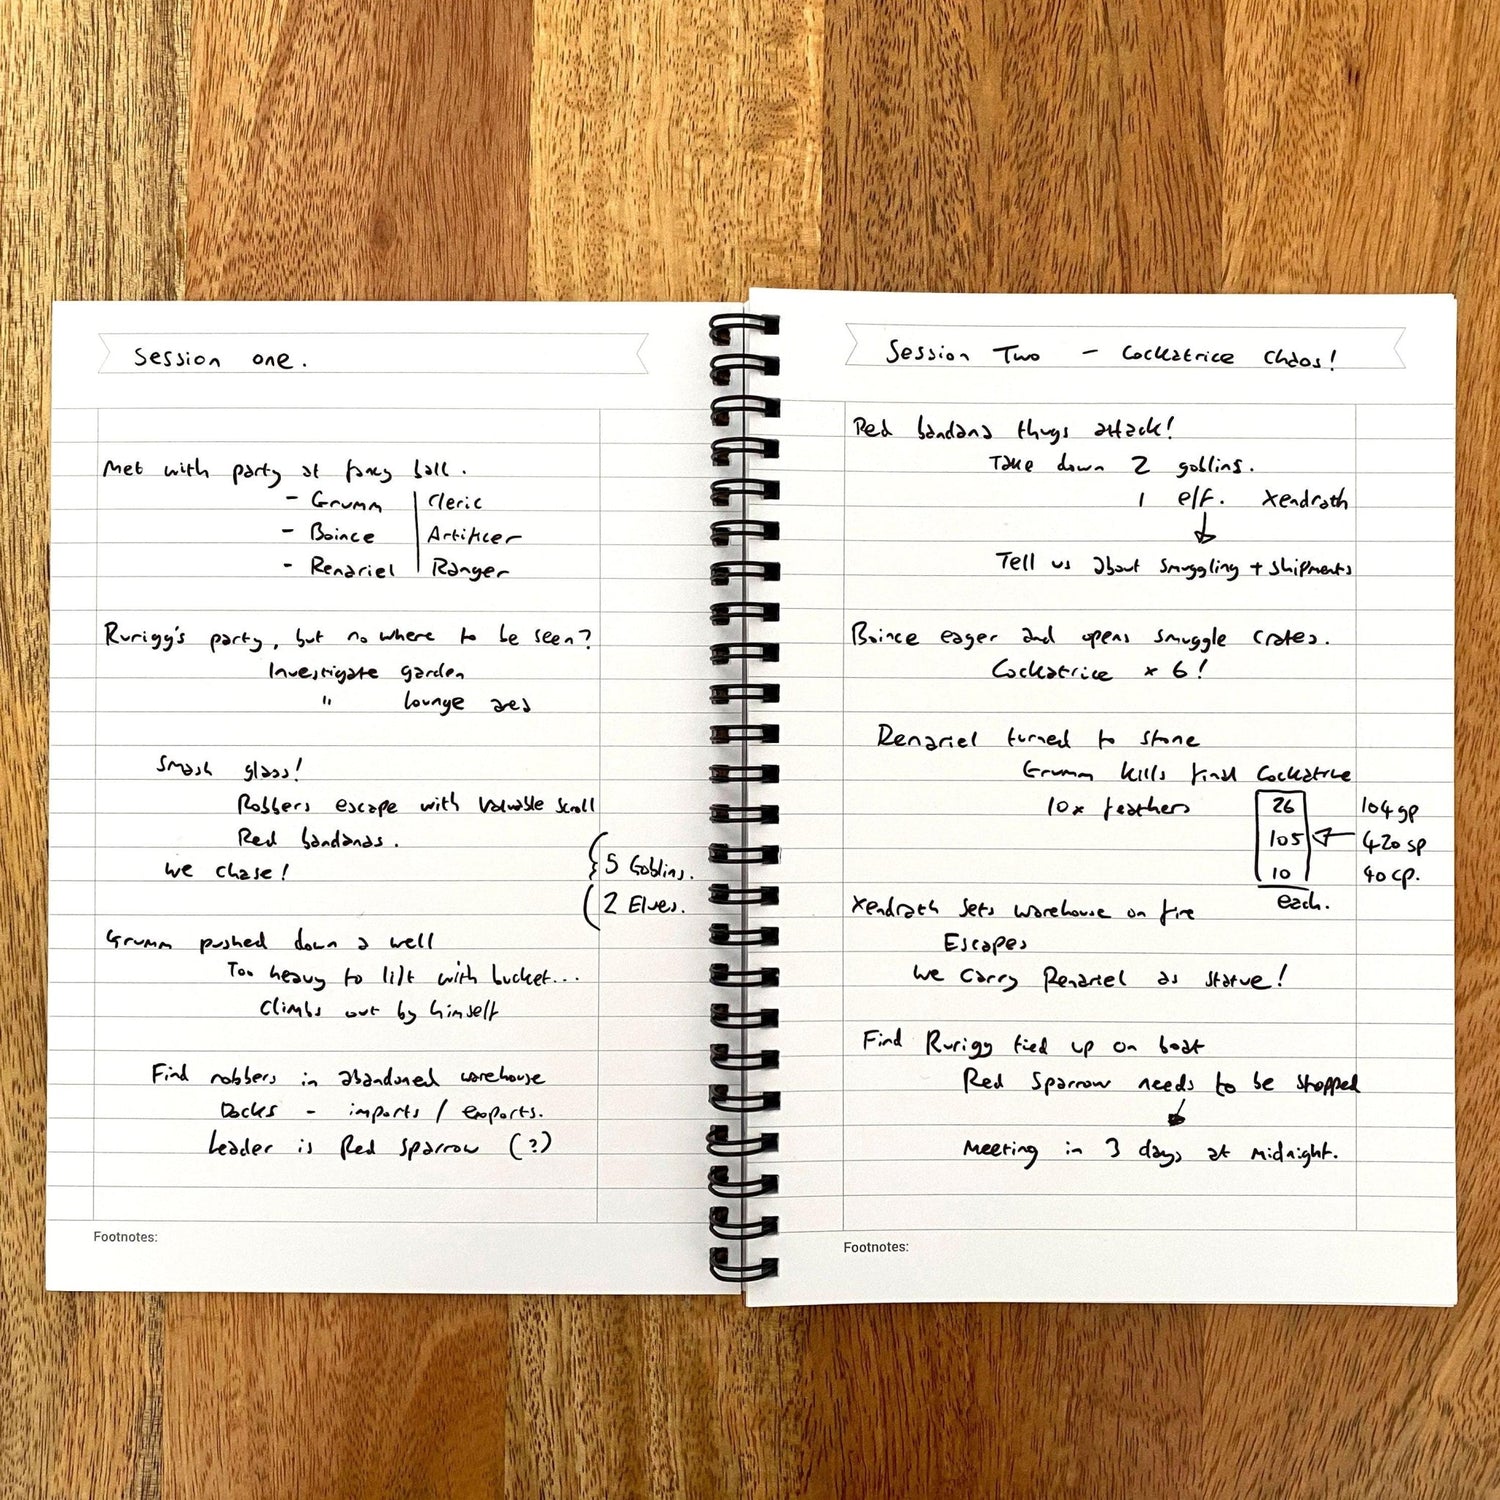 Session one.
Met with party at fancy ball.
- Grumm | Cleric
- Boince | Artificer
- Renariel | Ranger
Rurigg's party, but no where to be seen?
Investigate garden
" lounge area
Smash glass!
Robbers escape with valuable scroll
Red bandanas.
We chase!
5 Goblins.
2 Elves.
Grumm pushed down a well
Too heavy to lift with bucket...
Climbs out by himself
Find robbers in abandoned warehouse
Docks - imports / exports.
Leader is Red Sparrow (?)
Footnotes:
Session Two - Cockatrice Chaos!
Red bandana thugs attack!
Take down 2 goblins.
1 elf. Xendrath
Tell us about smuggling + shipments
Boince eager and opens smuggle crates.
Cockatrice x 6!
Renariel turned to stone
Grumm kills final Cockatrice
10x feathers 26 104 gp
105 420 sp
10 40 cp.
each.
Xendrath sets warehouse on fire
Escapes
We carry Renariel as statue!
Find Rurigg tied up on boat
Red Sparrow needs to be stopped
Meeting in 3 days at midnight.
Footnotes: